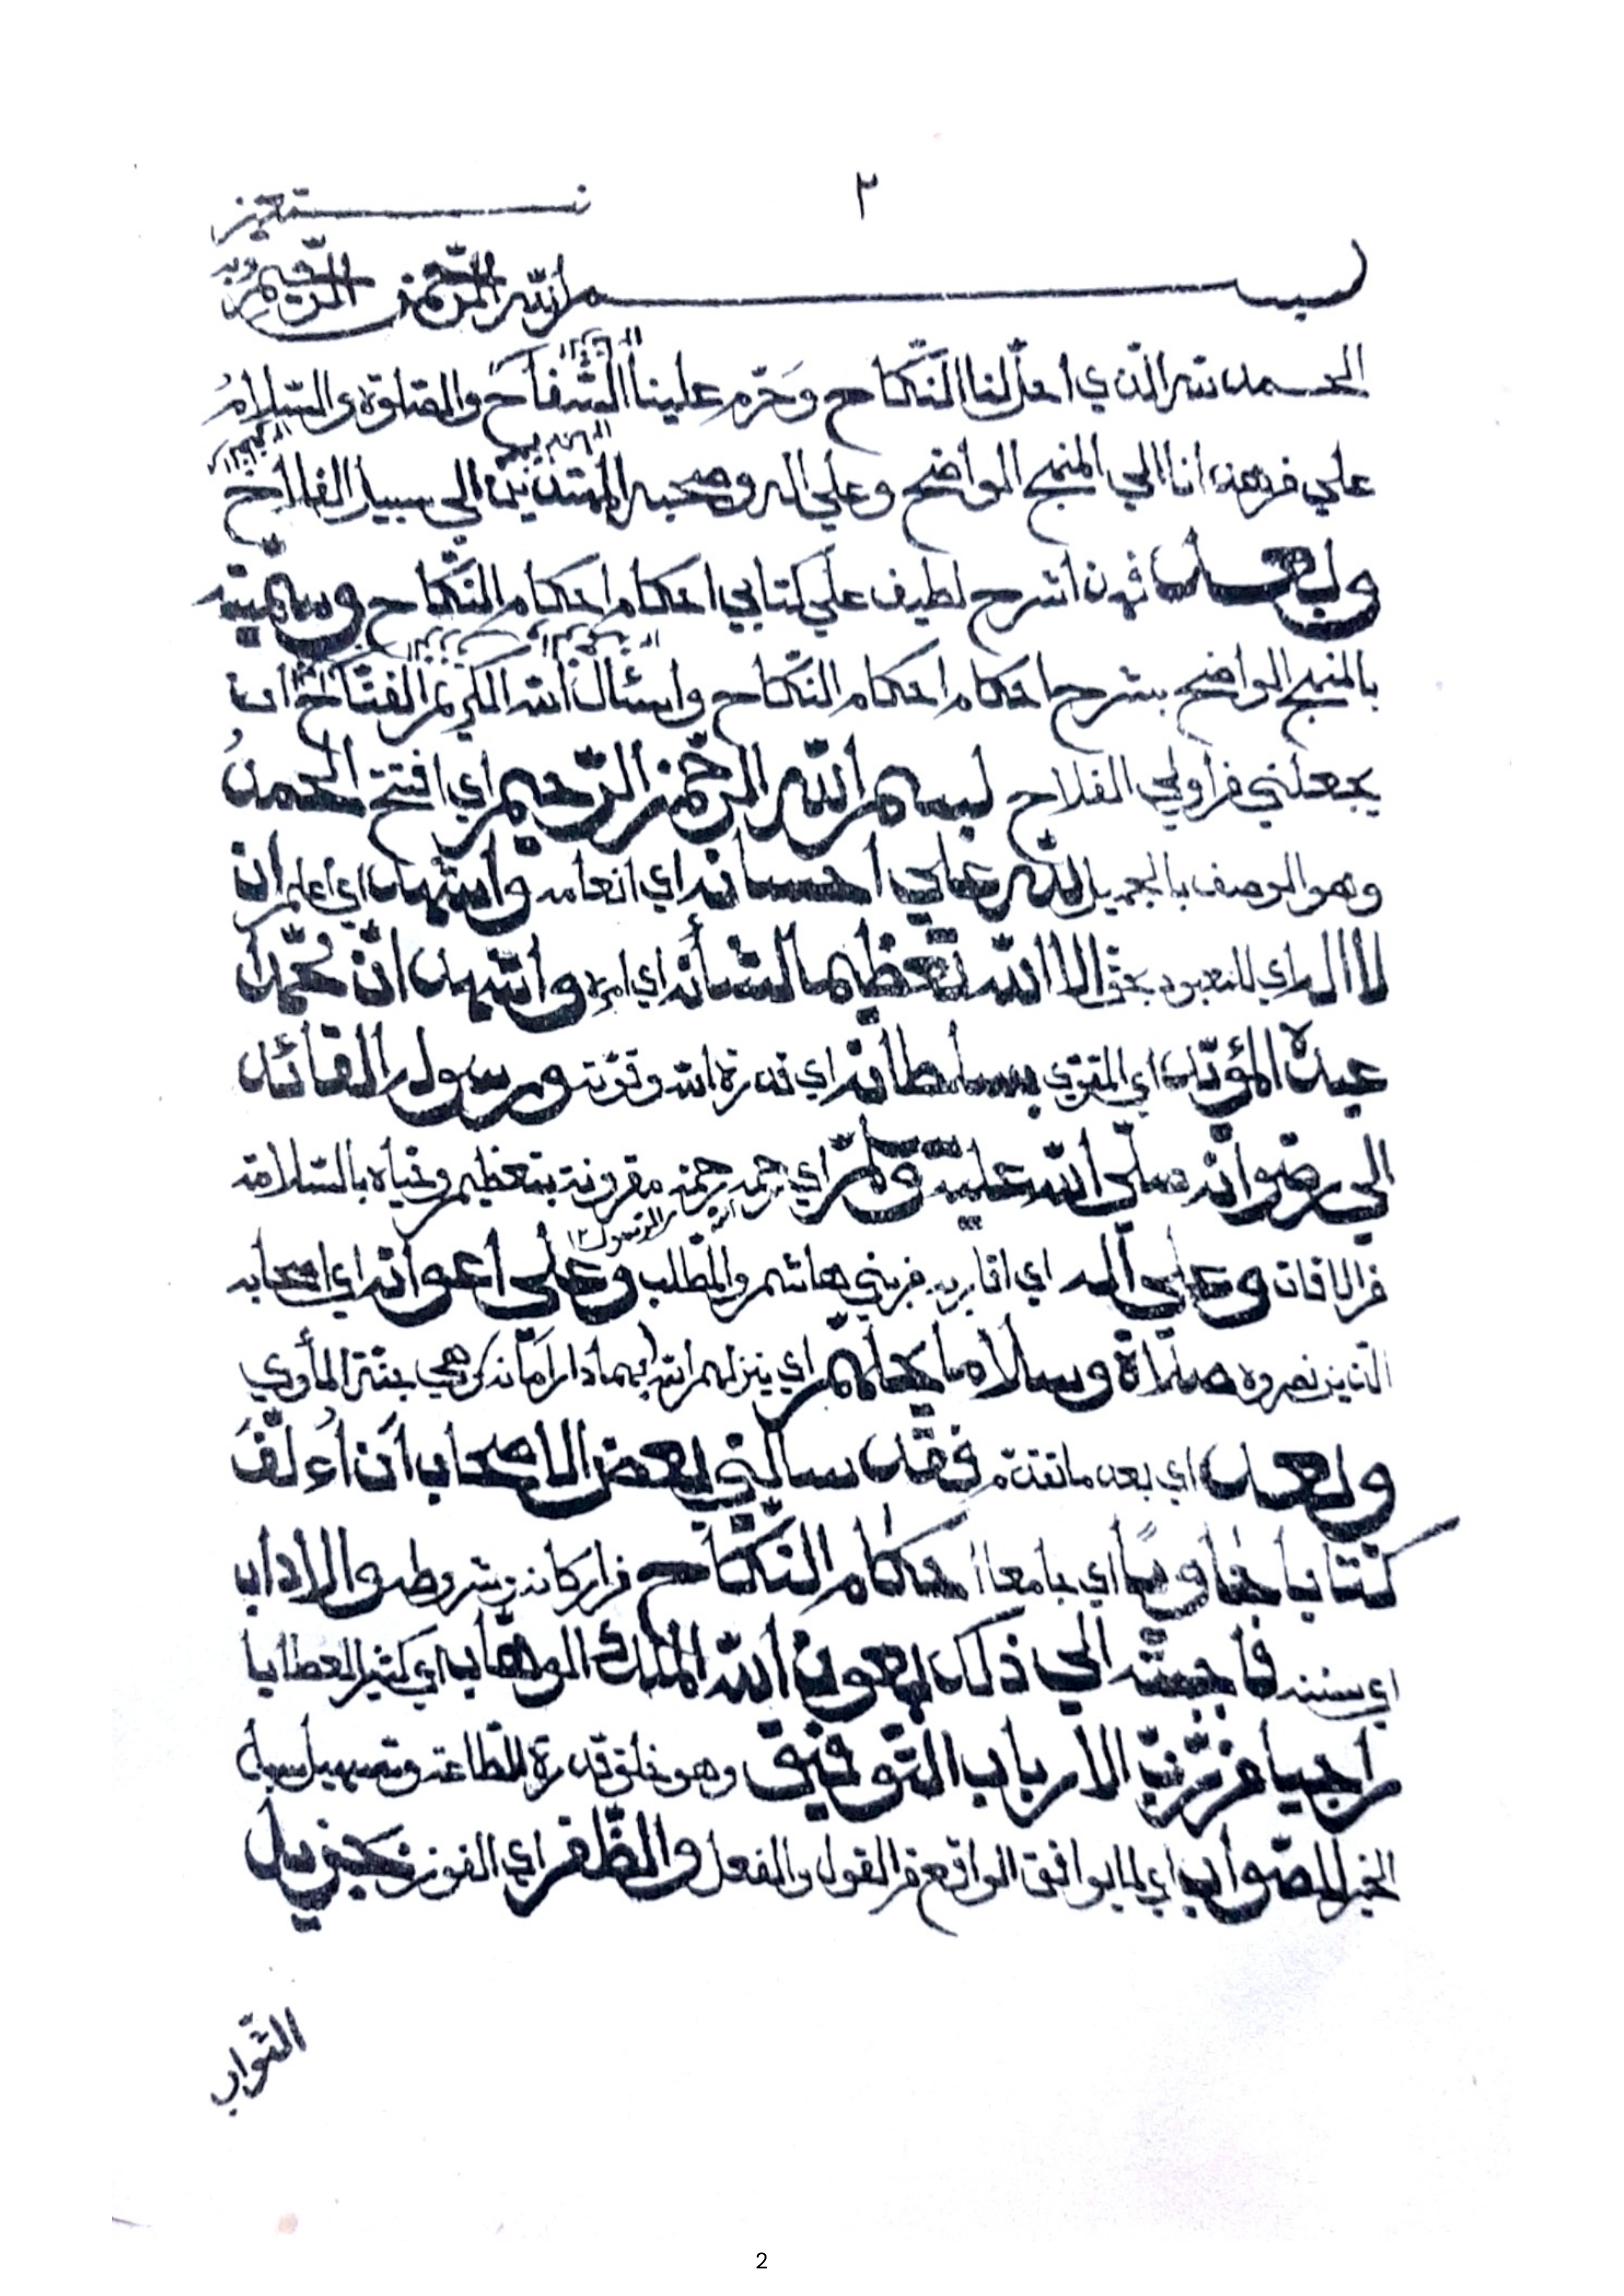 ٢
وبه نستعين
بسم الله الرحمن الرحيم
الحمد لله الذي احل لنا النكاح وَحَرّم علينا السّفاح والصلوة والسّلامُ
علي من هدانا الي المنهج الواضح وعلي اله وصحبه المهتدين الي سبيل الفلاح
وبعد فهذا شرح لطيف علي كتابي احكام احكام النّكاح وسمّيته
بالمنهج الواضح بشرح احكام احكام النّكاح واسئال الله الكريم الفتّاح ان
يجعلني من اولي الفلاح بسم الله الرّحمن الرّحيم اي افتتح الحمدُ
وهو الوصف بالجميل للّه علي احسانه اي انعامه واشهد اي اعلم ان
لا اله اي لا معبود بحق الا اللّه تعظيما لشأنه اي امره واشهد انّ محمّدا
عبده المؤيّد اي المقوي بسلطانه اي قدرة الله وقوّته ورسوله القائد
الي رضوانه صلّي اللّه عليه وسلّم اي رحمه رحمة مقرونة بتعظيم وحيّاه بالسّلامة
من الافات وعلي آله اي اقاربه من بني هاشم والمطّلب وعلي اعوانه اي اصحابه
الذين نصروه صلاة وسلاما يحلّهم اي ينزلهم الله بهما دار امانه وهي جنّة المأوي
وبعد اي بعد ما تقدّم فقد سالني بعض الاصحاب أن أُءلّفَ
كتابا حاويًا اي جامعا احكام النّكاح من اركانه وشروطه والاداب
اي سننه فاجبته الي ذلك بعون اللّه الملك الوهّاب اي كثير العطايا
راجيا من رّبّ الارباب التّوفيق وهو خلق قدرة للطّاعة وتسهيل سبيل
الخير للصّواب اي لما يوافق الواقع من القول والفعل والظّفر اي الفوز بجزيل
الثّواب
2